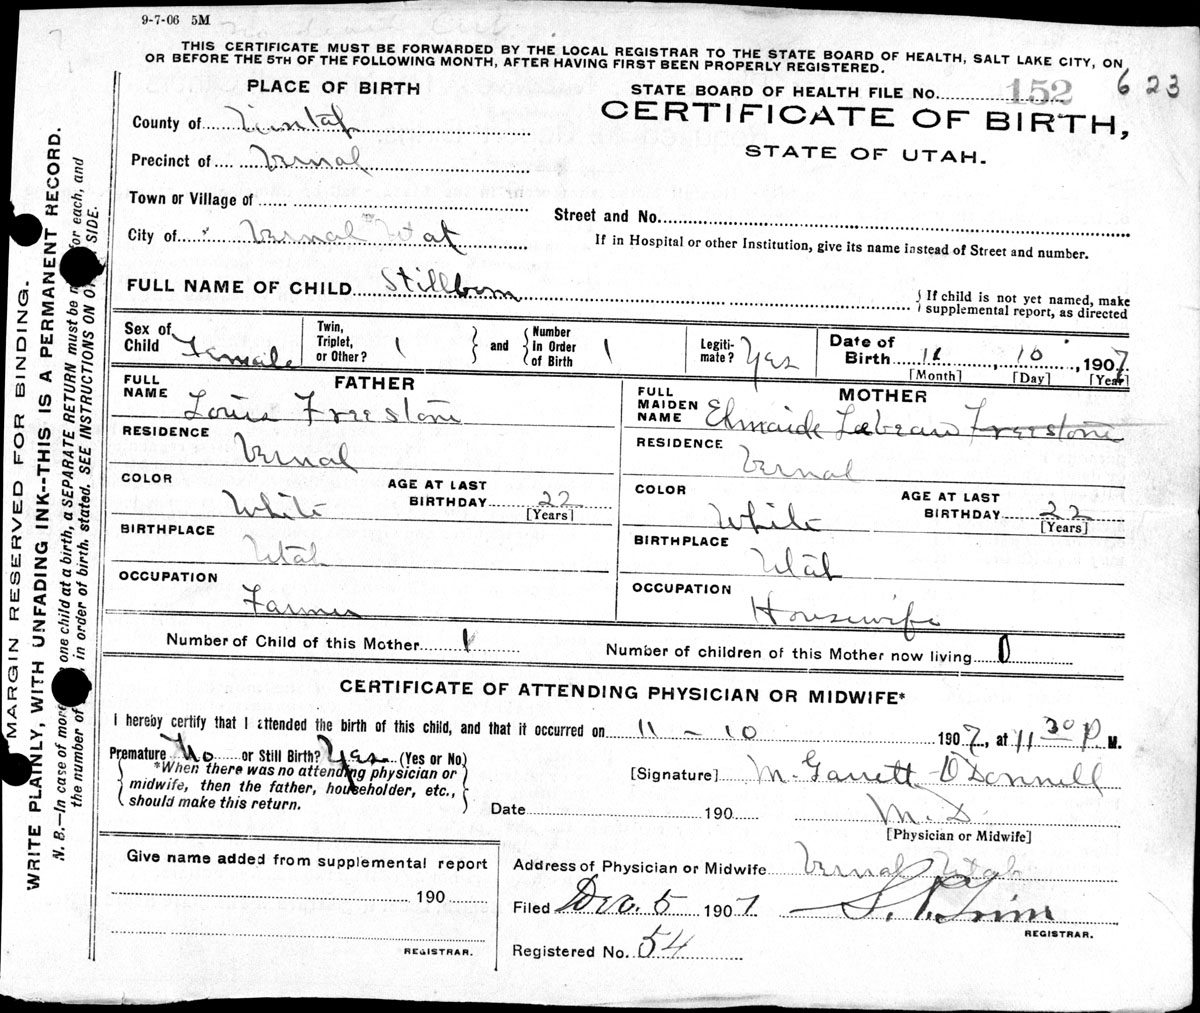 9-7-06 5M
THIS CERTIFICATE MUST BE FORWARDED BY THE LOCAL REGISTRAR TO THE STATE BOARD OF HEALTH, SALT LAKE CITY, ON
OR BEFORE THE 5TH OF THE FOLLOWING MONTH, AFTER HAVING FIRST BEEN PROPERLY REGISTERED.
PLACE OF BIRTH
STATE BOARD OF HEALTH FILE No. 152 623
CERTIFICATE OF BIRTH,
STATE OF UTAH.
County of Uintah
Precinct of Vernal
Town or Village of
Street and No.
City of Vernal Utah
If in Hospital or other Institution, give its name instead of Street and number.
FULL NAME OF CHILD Stillborn
{ If child is not yet named, make
supplemental report, as directed
Sex of Child Female
Twin, Triplet, or Other? 1 } and { Number In Order of Birth 1
Legiti-mate? Yes
Date of Birth 11 10, 1907
[Month] [Day] [Year]
FATHER
FULL NAME Louis Freestone
RESIDENCE Vernal
COLOR White
AGE AT LAST BIRTHDAY 22 [Years]
BIRTHPLACE Utah
OCCUPATION Farmer
MOTHER
FULL MAIDEN NAME Labeau Freestone
RESIDENCE Vernal
COLOR White
AGE AT LAST BIRTHDAY 22 [Years]
BIRTHPLACE Utah
OCCUPATION Housewife
Number of Child of this Mother 1
Number of children of this Mother now living 0
CERTIFICATE OF ATTENDING PHYSICIAN OR MIDWIFE*
I hereby certify that I attended the birth of this child, and that it occurred on 11 - 10 1907, at 11 30 P M.
Premature No or Still Birth? Yes (Yes or No)
{ *When there was no attending physician or
midwife, then the father, householder, etc.,
should make this return. }
[Signature] M. Garrett O'Donnell
Date 190 M.D.
[Physician or Midwife]
Give name added from supplemental report
190
REGISTRAR.
Address of Physician or Midwife Vernal Utah
Filed Dec. 5 1907
REGISTRAR.
Registered No. 54
MARGIN RESERVED FOR BINDING.
WRITE PLAINLY, WITH UNFADING INK--THIS IS A PERMANENT RECORD.
N. B.—In case of more one child at a birth, a SEPARATE RETURN must be for each, and
the number of , in order of birth, stated. SEE INSTRUCTIONS ON SIDE.